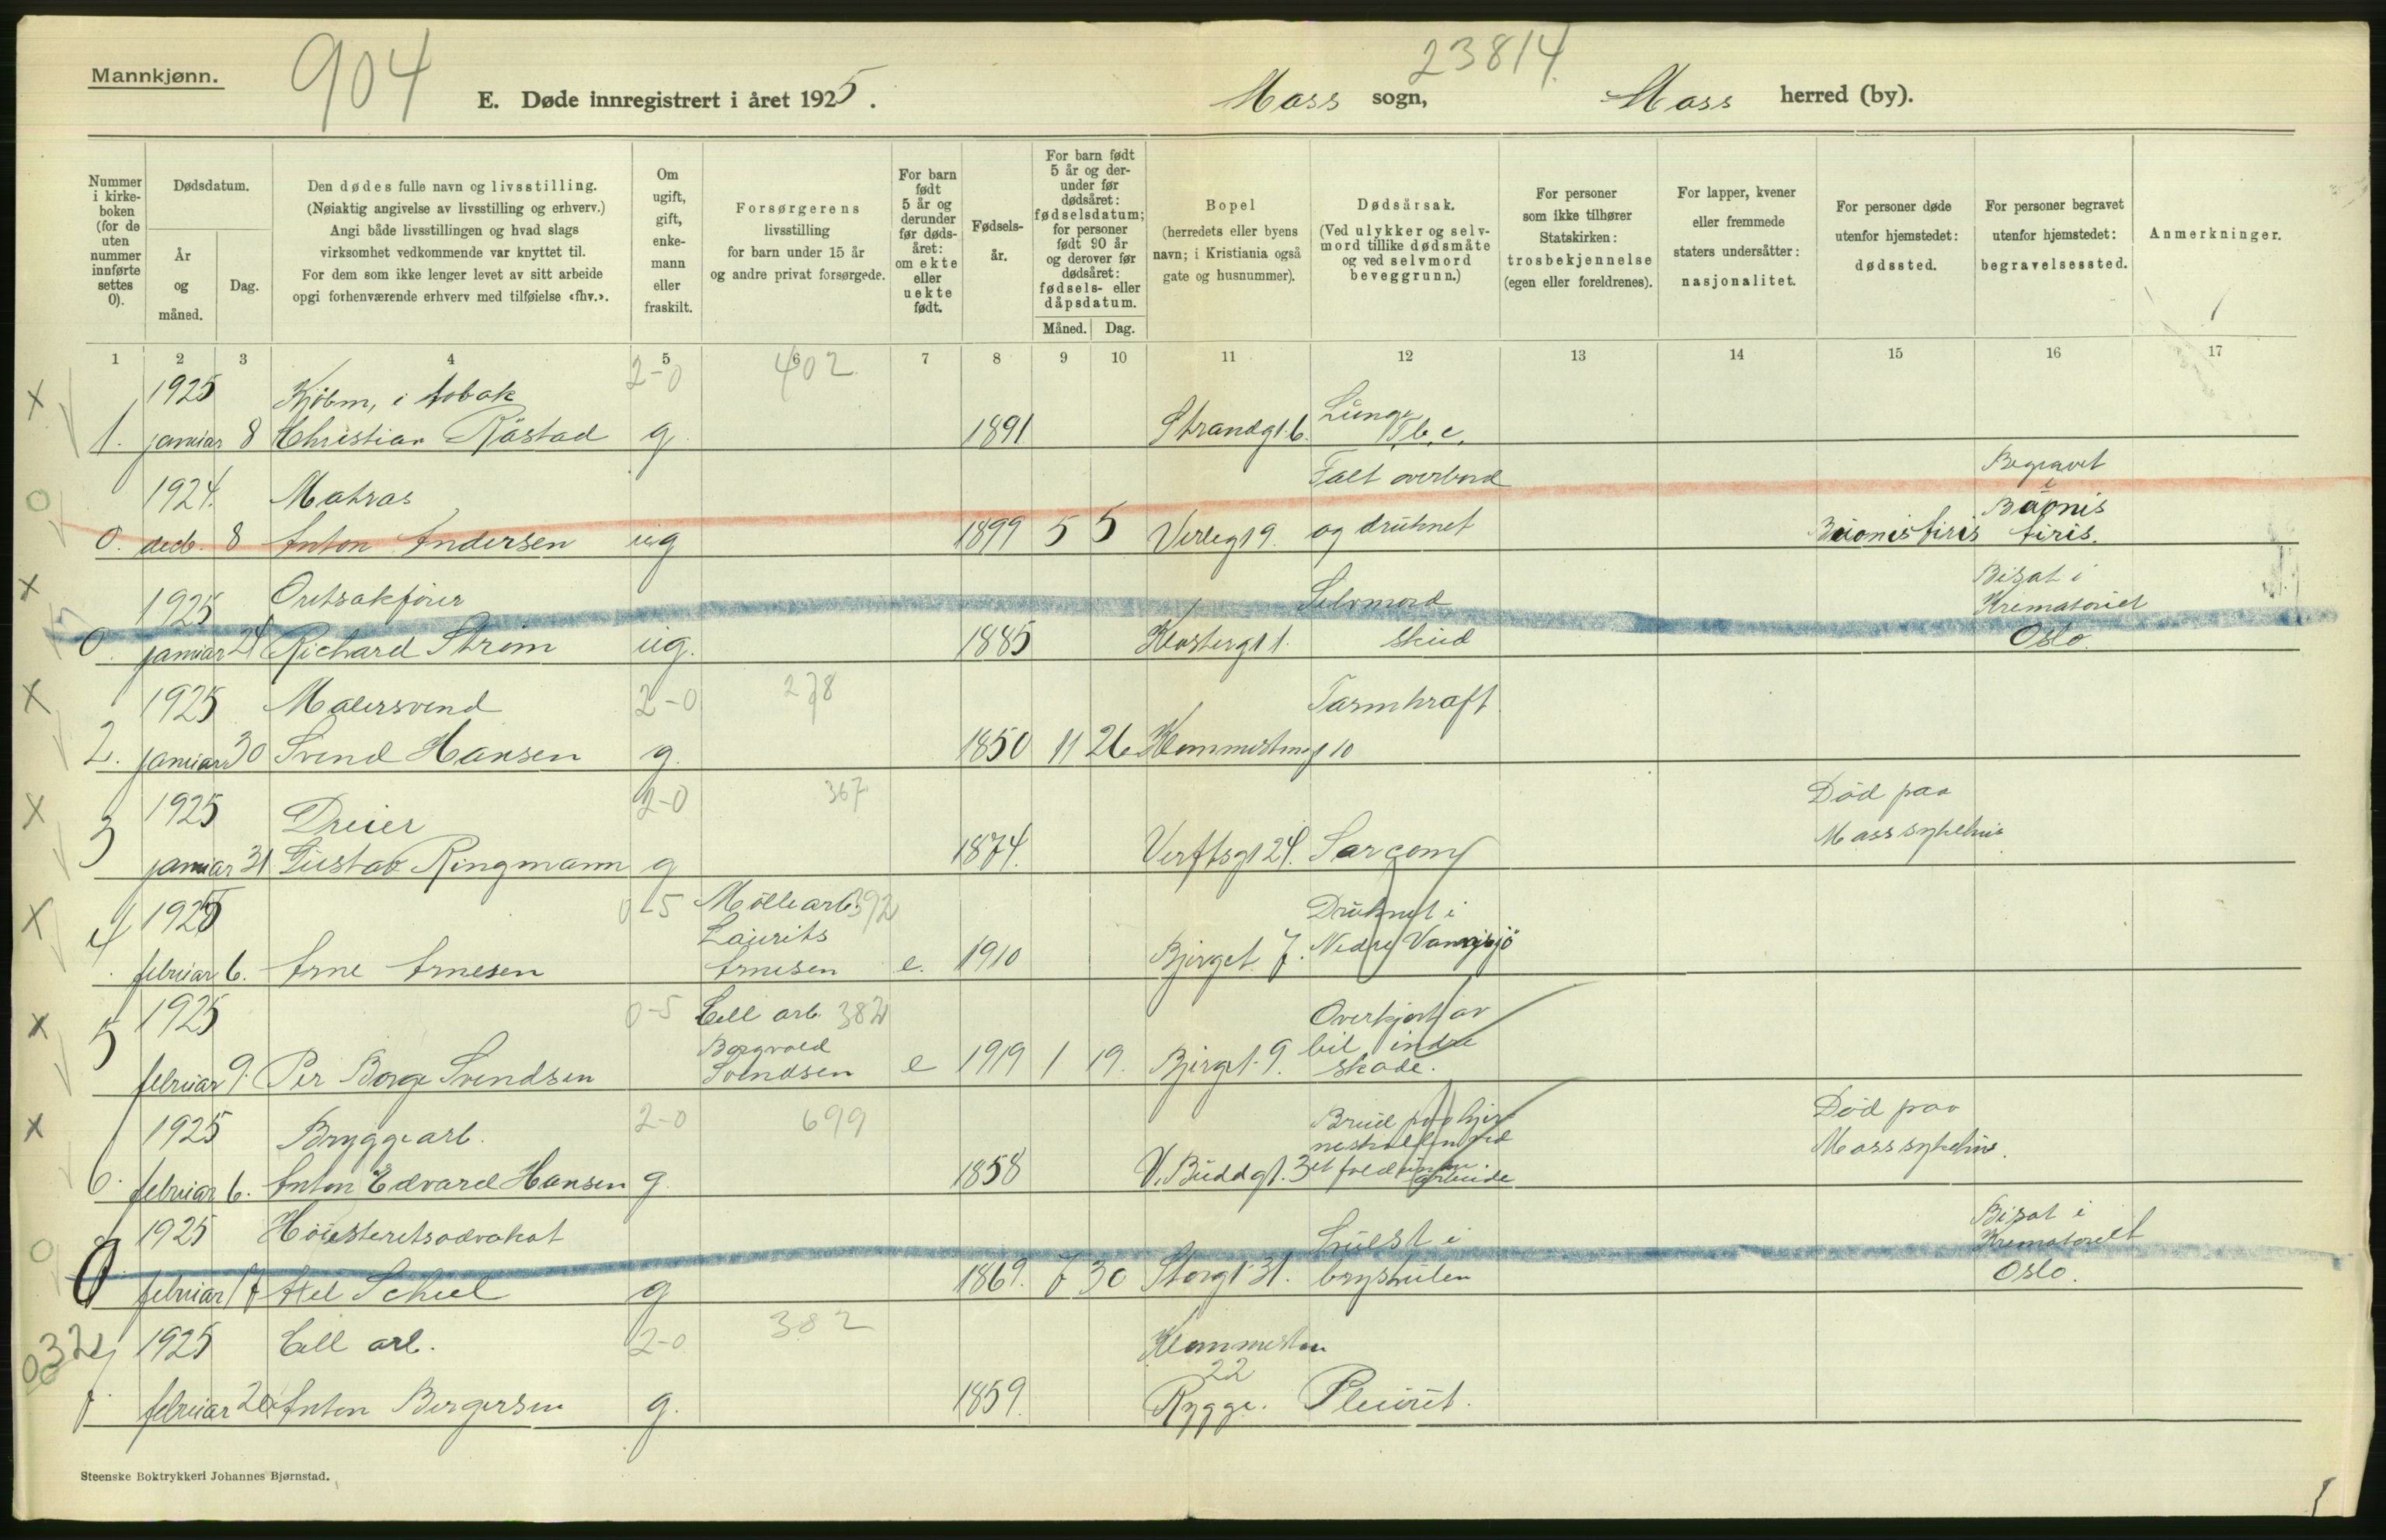 Mannkjønn.
904
23814.
E. Døde innregistrert i året 1925.
Moss sogn, Moss herred (by).
Nummer i kirkeboken (for de uten nummer innførte settes 0).
Dødsdatum.
År og måned.
Dag.
Den dødes fulle navn og livsstilling.
(Nøiaktig angivelse av livsstilling og erhverv.)
Angi både livsstillingen og hvad slags
virksomhet vedkommende var knyttet til.
For dem som ikke lenger levet av sitt arbeide
opgi forhenværende erhverv med tilføielse «fhv.».
Om ugift, gift, enkemann eller fraskilt.
Forsørgerens
livsstilling
for barn under 15 år
og andre privat forsørgede.
For barn født 5 år og derunder før dødsåret: om ekte eller uekte født.
Fødselsår.
For barn født 5 år og derunder før dødsåret: fødselsdatum; for personer født 90 år og derover før dødsåret: fødsels- eller dåpsdatum.
Måned. Dag.
Bopel
(herredets eller byens
navn; i Kristiania også
gate og husnummer).
Dødsårsak.
(Ved ulykker og selvmord tillike dødsmåte og ved selvmord beveggrunn.)
For personer
som ikke tilhører
Statskirken:
trosbekjennelse
(egen eller foreldrenes).
For lapper, kvener
eller fremmede
staters undersåtter:
nasjonalitet.
For personer døde
utenfor hjemstedet:
dødssted.
For personer begravet
utenfor hjemstedet:
begravelsessted.
Anmerkninger.
1 2 3 4 5 6 7 8 9 10 11 12 13 14 15 16 17
1925 Kjöbm, i tobak 2-0 402 Lunge
1. januar 8 Christian Råstad g 1891 Strandgt. 6. T.b.c.
1924. Matros Falt overbord Begravet i
0. decb. 8 Anton Andersen ug 1899 5 5 Verlegt 9. og druknet
1925 Overretsakfører Selvmord Bisat i Krematoriet
0. januar 24 Richard Strøm ug. 1885 Klostergt 1. skud Oslo.
1925 Malersvend 2-0 278 Tarmkræft
2. januar 30 Svend Hansen g. 1850 11 26 10
1925 Dreier 2-0 367 Död paa
3 januar 31 Gustav Ringmann g 1874. Verftsgt 24. Sarcom Moss sykehus
1925 0-5 Möllearb. 392 Druknet i
4. februar 6. Arne Arnesen Laurits Arnesen e. 1910 Bjerget 7. Nedre Vansjö
1925 0-5 Cell arb. 382 Overkjørt av
5 februar 9. Per Borge Svendsen Borgvald Svendsen e 1919 1 19. Bjerget 9. bil indre skade.
1925 Bryggearb. 2-0 699 Død paa
6. februar 6. Anton Edvard Hansen g. 1858 V. Buddgt. 3 Moss sykehus.
1925 Høiesteretsadvokat Svulst i Bisat i Krematoriet
0 februar 17 Axel Scheel g 1869. 7 30 Storgt 31. brysthulen Oslo.
1925 Cell arb. 2-0 382
7. februar 20 Anton Bergersen g. 1859. 22 Rygge. Pleurit.
Steenske Boktrykkeri Johannes Bjørnstad.